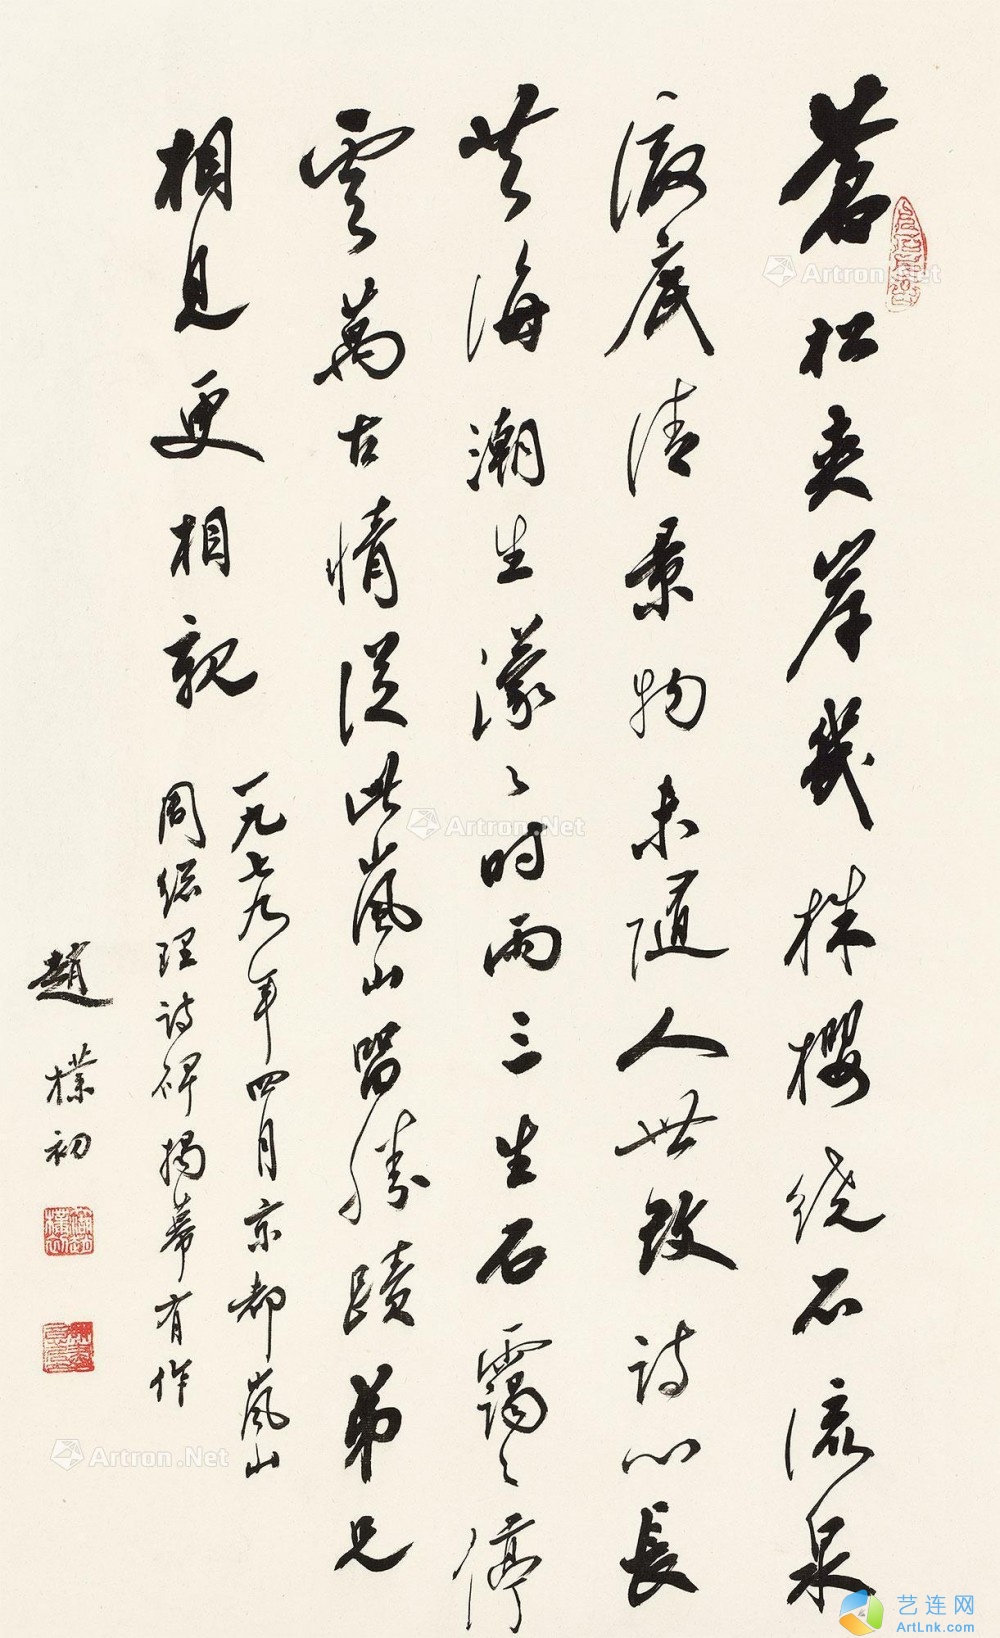 蒼松夹岸幾株櫻绕石流泉
澈底清景物未随人世改诗心長
共海潮生濛々时雨三生石靄々停
雲萬古情从此嵐山留勝蹟弟兄
相見更相親
一九七九年四月京都嵐山
周总理诗碑揭幕有作
趙樸初
Artron.Net
Artron.Net
Artron.Net
艺连网
ArtLnk.com